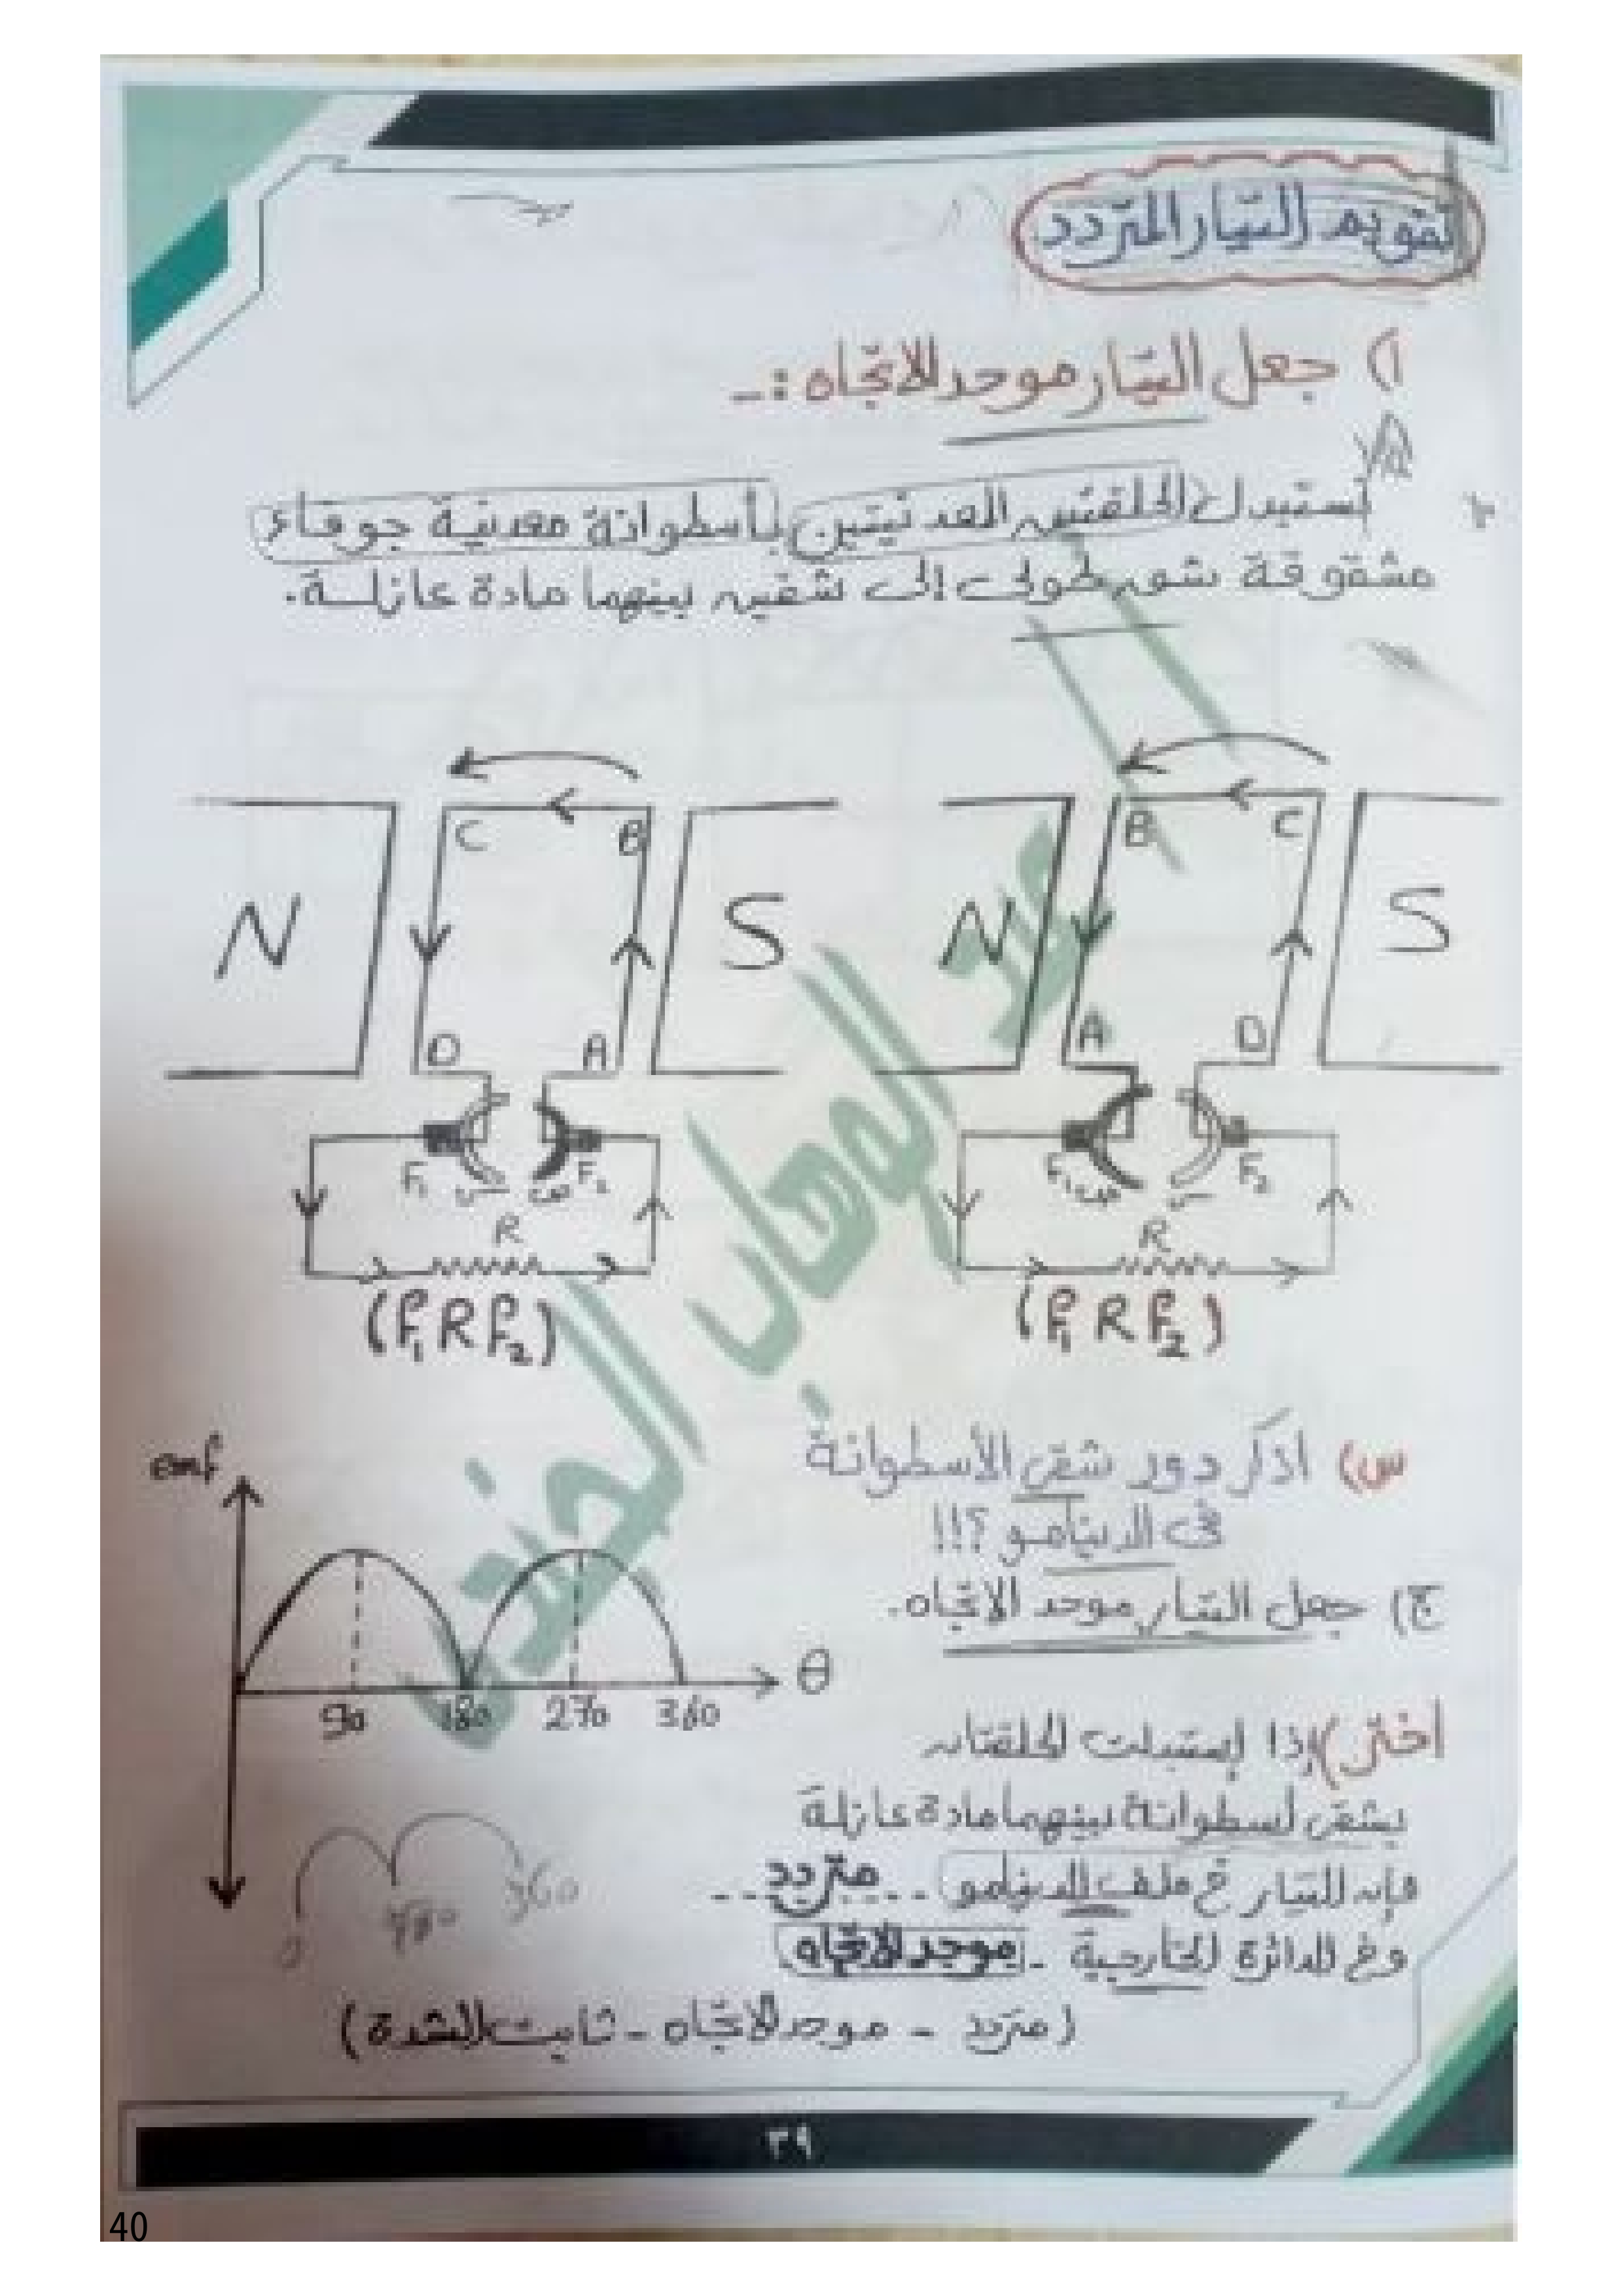 تقويم التيار المتردد
١) جعل التيار موحد الاتجاه :-
تستبدل الحلقتين المعدنيتين بأسطوانة معدنية جوفاء
مشقوقة شق طولى إلى شقين بينهما مادة عازلة.
N C B S
D A
F₁ F₂
R
(F₁ R F₂)
N B C S
A D
F₁ F₂
R
(F₁ R F₂)
س) اذكر دور شقى الأسطوانة
فى الدينامو ؟!!
ج) جعل التيار موحد الاتجاه.
emf
θ
90 180 270 360
0 180 360
اختر) إذا إستبدلت الحلقتان
بشقى أسطوانة بينهما مادة عازلة
فإن التيار في ملف الدينامو ... متردد ...
وفي الدائرة الخارجية - موحد الاتجاه
(متردد - موحد الاتجاه - ثابت الشدة)
٣٩
40